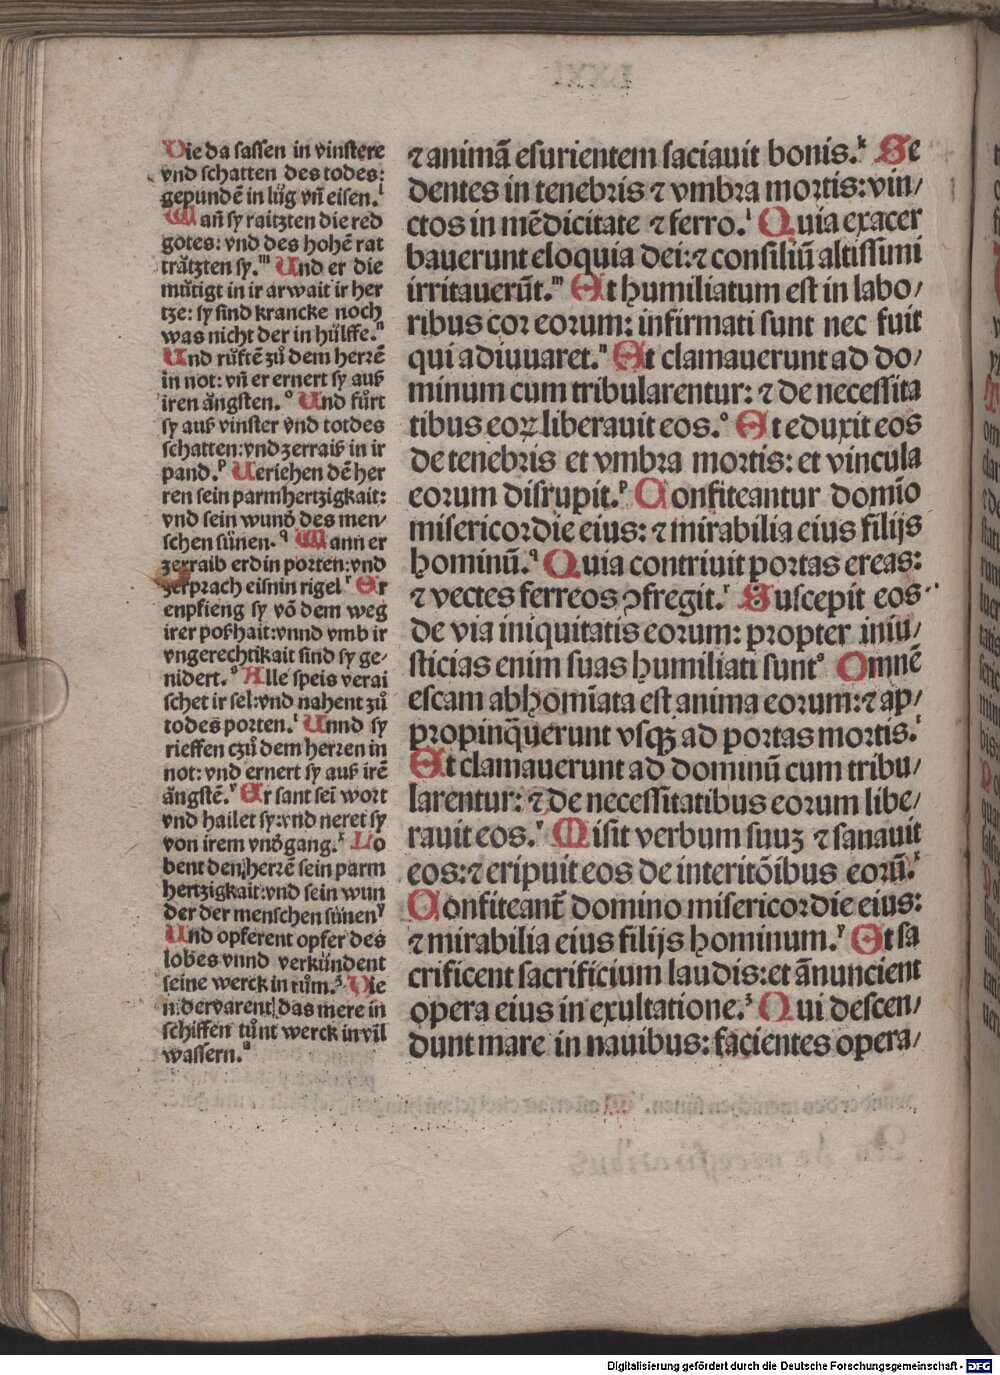 Die da sassen in vinstere
vnd schatten des todes:
gepundē in lüg vn̄ eisen.l
Wañ sy raitzten die red
gotes: vnd des hohē rat
trätzten sy.m Und er die
mütigt in ir arwait ir her
tze: sy sind krancke noch
was nicht der in hülffe.n
Und rüfftē zů dem herrē
in not: vn̄ er ernert sy auß
iren ängsten.o Und fůrt
sy auß vinster vnd totdes
schatten: vnd zerraiß in ir
pand.p Veriehen dē her
ren sein parmhertzigkait:
vnd sein wund̛ des men/
schen sünen.q Wann er
zerraib erdin porten: vnd
zerprach eisnin rigel r Er
enpfieng sy vō dem weg
irer poßhait: vnnd vmb ir
vngerechtikait sind sy ge/
nidert.s Alle speis verai
schet ir sel: vnd nahent zů
todes porten.t Unnd sy
rieffen czů dem herren in
not: vnd ernert sy auß irē
ängstē.v Er sant sei͂ wort
vnd hailet sy: vnd neret sy
von irem vnd̛gang.x Lo
bent den herrē sein parm
hertzigkait: vnd sein wun
der der menschen sünen y
Und opferent opfer des
lobes vnnd verkündent
seine werck in rům.z Die
nidervarent das mere in
schiffen tůnt werck in vil
wassern.a
⁊ animā esurientem saciauit bonis.k Se
dentes in tenebris ⁊ vmbra mortis: vin/
ctos in mēdicitate ⁊ ferro.l Quia exacer
bauerunt eloquia dei: ⁊ consiliū altissimi
irritauerūt.m Et humiliatum est in labo/
ribus cor eorum: infirmati sunt nec fuit
qui adiuuaret.n Et clamauerunt ad do/
minum cum tribularentur: ⁊ de necessita
tibus eoꝝ liberauit eos.o Et eduxit eos
de tenebris et vmbra mortis: et vincula
eorum disrupit.p Confiteantur domīo
misericordie eius: ⁊ mirabilia eius filijs
hominū.q Quia contriuit portas ereas:
⁊ vectes ferreos ꝯfregit.r Suscepit eos
de via iniquitatis eorum: propter iniu/
sticias enim suas humiliati sunt s Omnē
escam abhomīata est anima eorum: ⁊ ap/
propinq̄uerunt vsqꝫ ad portas mortis.t
Et clamauerunt ad dominū cum tribu/
larentur: ⁊ de necessitatibus eorum libe/
rauit eos.v Misit verbum suuꝫ ⁊ sanauit
eos: ⁊ eripuit eos de interitōibus eorū.x
Confiteant᷑ domino misericordie eius:
⁊ mirabilia eius filijs hominum.y Et sa
crificent sacrificium laudis: et ānuncient
opera eius in exultatione.z Qui descen/
dunt mare in nauibus: facientes opera/
Digitalisierung gefördert durch die Deutsche Forschungsgemeinschaft - DFG